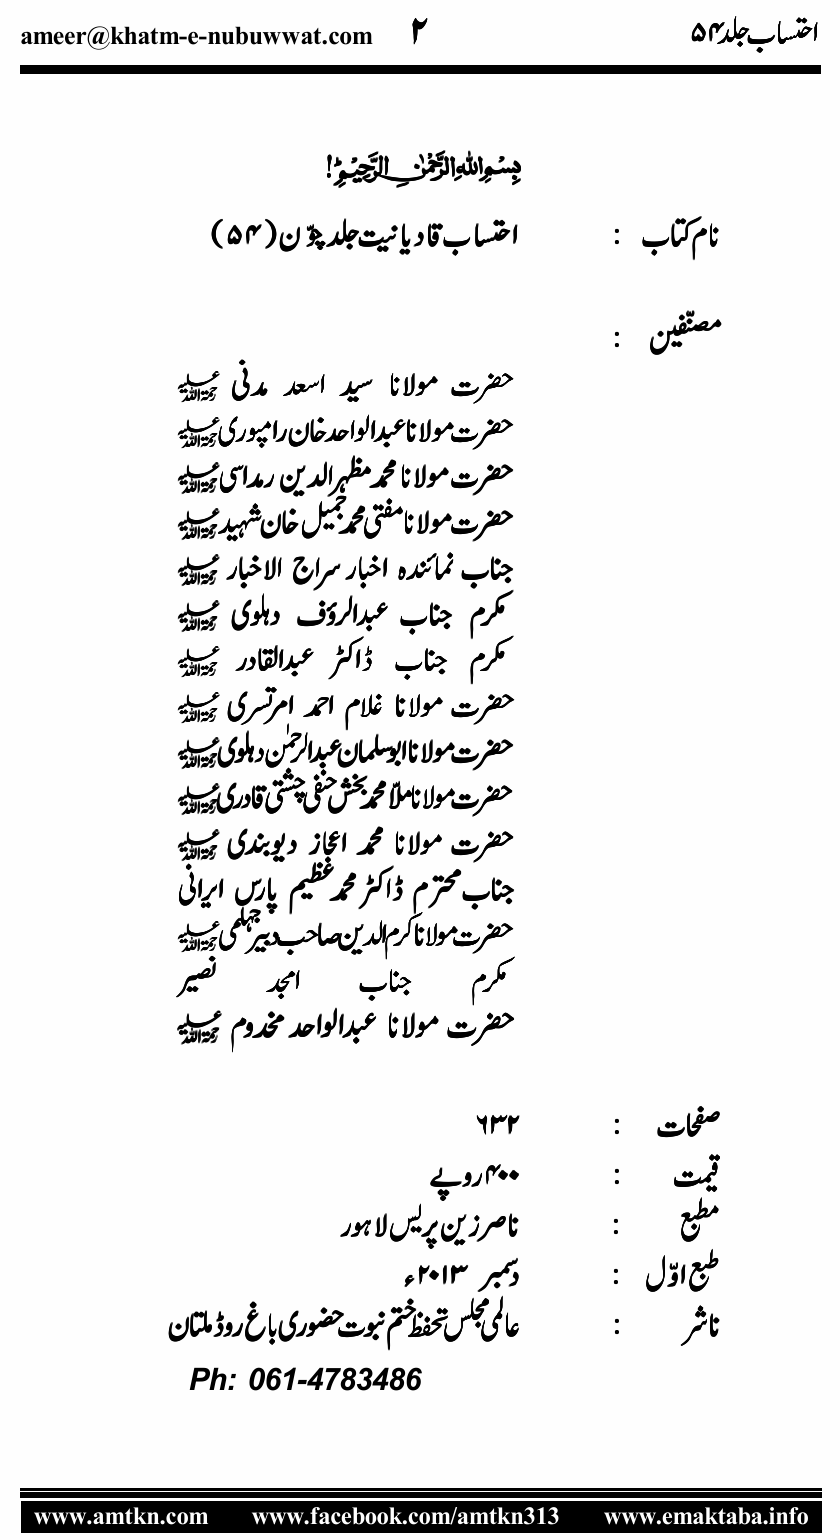 احتساب جلد ۵۴ ۲ ameer@khatm-e-nubuwwat.com
بسم اللہ الرحمٰن الرحیم!
نام کتاب : احتساب قادیانیت جلد چوّن (۵۴)
مصنّفین :
حضرت مولانا سید اسعد مدنی رحمۃ اللہ علیہ
حضرت مولانا عبدالواحد خان رامپوری رحمۃ اللہ علیہ
حضرت مولانا محمد مظہرالدین رمداسی رحمۃ اللہ علیہ
حضرت مولانا مفتی محمد جمیل خان شہید رحمۃ اللہ علیہ
جناب نمائندہ اخبار سراج الاخبار رحمۃ اللہ علیہ
مکرم جناب عبدالرؤف دہلوی رحمۃ اللہ علیہ
مکرم جناب ڈاکٹر عبدالقادر رحمۃ اللہ علیہ
حضرت مولانا غلام احمد امرتسری رحمۃ اللہ علیہ
حضرت مولانا ابوسلمان عبدالرحمٰن دہلوی رحمۃ اللہ علیہ
حضرت مولانا ملاّ محمد بخش حنفی چشتی قادری رحمۃ اللہ علیہ
حضرت مولانا محمد اعجاز دیوبندی رحمۃ اللہ علیہ
جناب محترم ڈاکٹر محمد عظیم پارس ایرانی
حضرت مولانا کرم الدین صاحب دبیر جہلمی رحمۃ اللہ علیہ
مکرم جناب امجد نصیر
حضرت مولانا عبدالواحد مخدوم رحمۃ اللہ علیہ
صفحات : ۶۳۲
قیمت : ۴۰۰ روپے
مطبع : ناصر زین پریس لاہور
طبع اوّل : دسمبر ۲۰۱۳ء
ناشر : عالمی مجلس تحفظ ختم نبوت حضوری باغ روڈ ملتان
Ph: 061-4783486
www.amtkn.com www.facebook.com/amtkn313 www.emaktaba.info